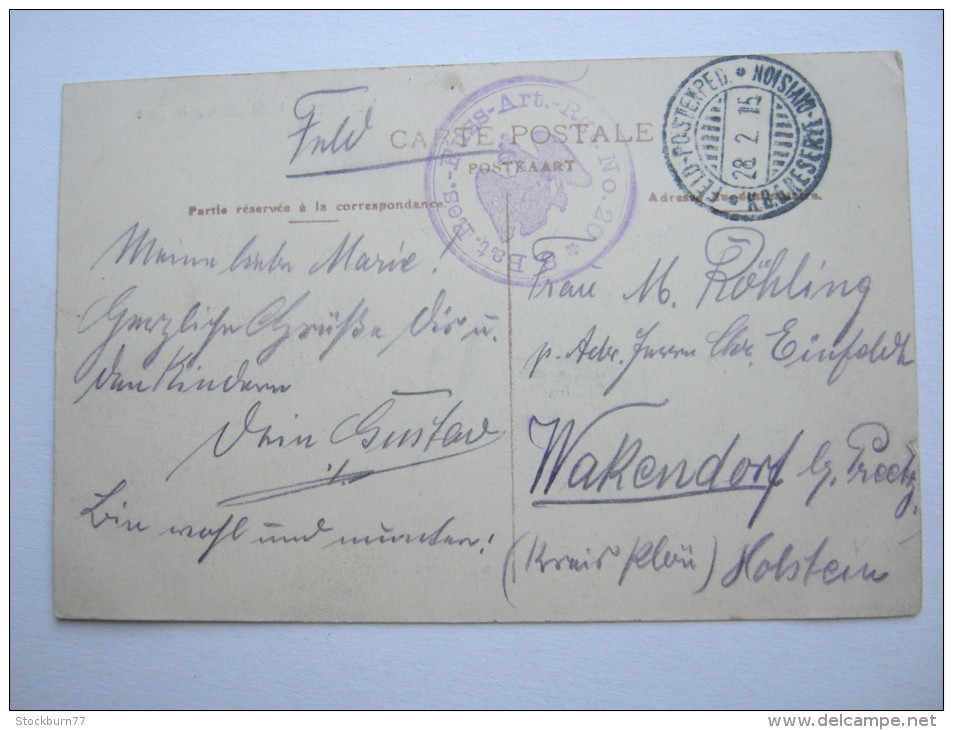 Feld
CARTE POSTALE
POSTKAART
Partie réservée à la correspondance.
Bat. Res.-Fuss-Art.-Reg. No. 20 *
FELD-POSTEXPED. * 28.2.15
Meine liebe Marie!
Herzliche Grüße Dir u.
den Kindern
Dein Gustav
Bin wohl und munter!
Frau M. Röhling
p. Adr. Herrn Chr. Einfeldt
Wakendorf b. Preetz,
(Kreis Plön) Holstein
Stockburn77
delcampe.net